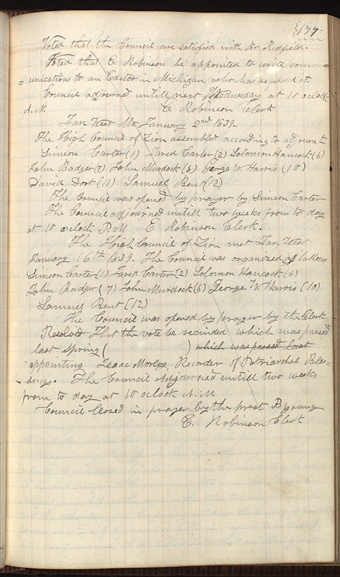 179
Voted that the Council are satisfied with Mr Redfield.
Voted that E Robinson be appointed to write com=
=munication to an Editor in Michigan, who has
Council adjourned untill next at 10 oclock
A.M E Robinson Clerk
Far West Mo, January 2nd 1839.
The High Council of Zion assembled according to adjournt
Simeon Carter (1) Jared Carter (2) Solomon Hancock (6)
John Badger (7) John Murdock (8) George W Harris (10)
David Dort (11) Samuel Bent (12)
The Council was opened by prayer by Simeon Carter
The Council adjourned untill two weeks from to day
at 10 oclock E Robinson Clerk.
The High Council of Zion met Far West
January 16th 1839. The Council was organized as follows
Simeon Carter (1) Jared Carter (2) Solomon Hancock (6)
John Badger (7) John Murdock (8) George W Harris (10)
Samuel Bent (12)
The Council was opened by prayer by the Clerk
Resolvd That the vote be recinded which was passed
last spring ( ) which was passed last
appointing Isaac Morley, Recorder of Patriarchal Bles-
-sings. The Council adjourned untill two weeks
from to day at 10 oclock A.M.
Council Closed in prayer by the prest B young
E. Robinson Clerk